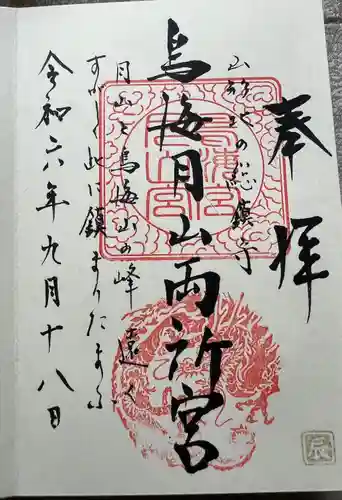 奉拝
山形の總鎮守
鳥海月山両所宮
月山と鳥海山の峰遠く
すがしく此に鎮まりたまふ
令和六年九月十八日
辰